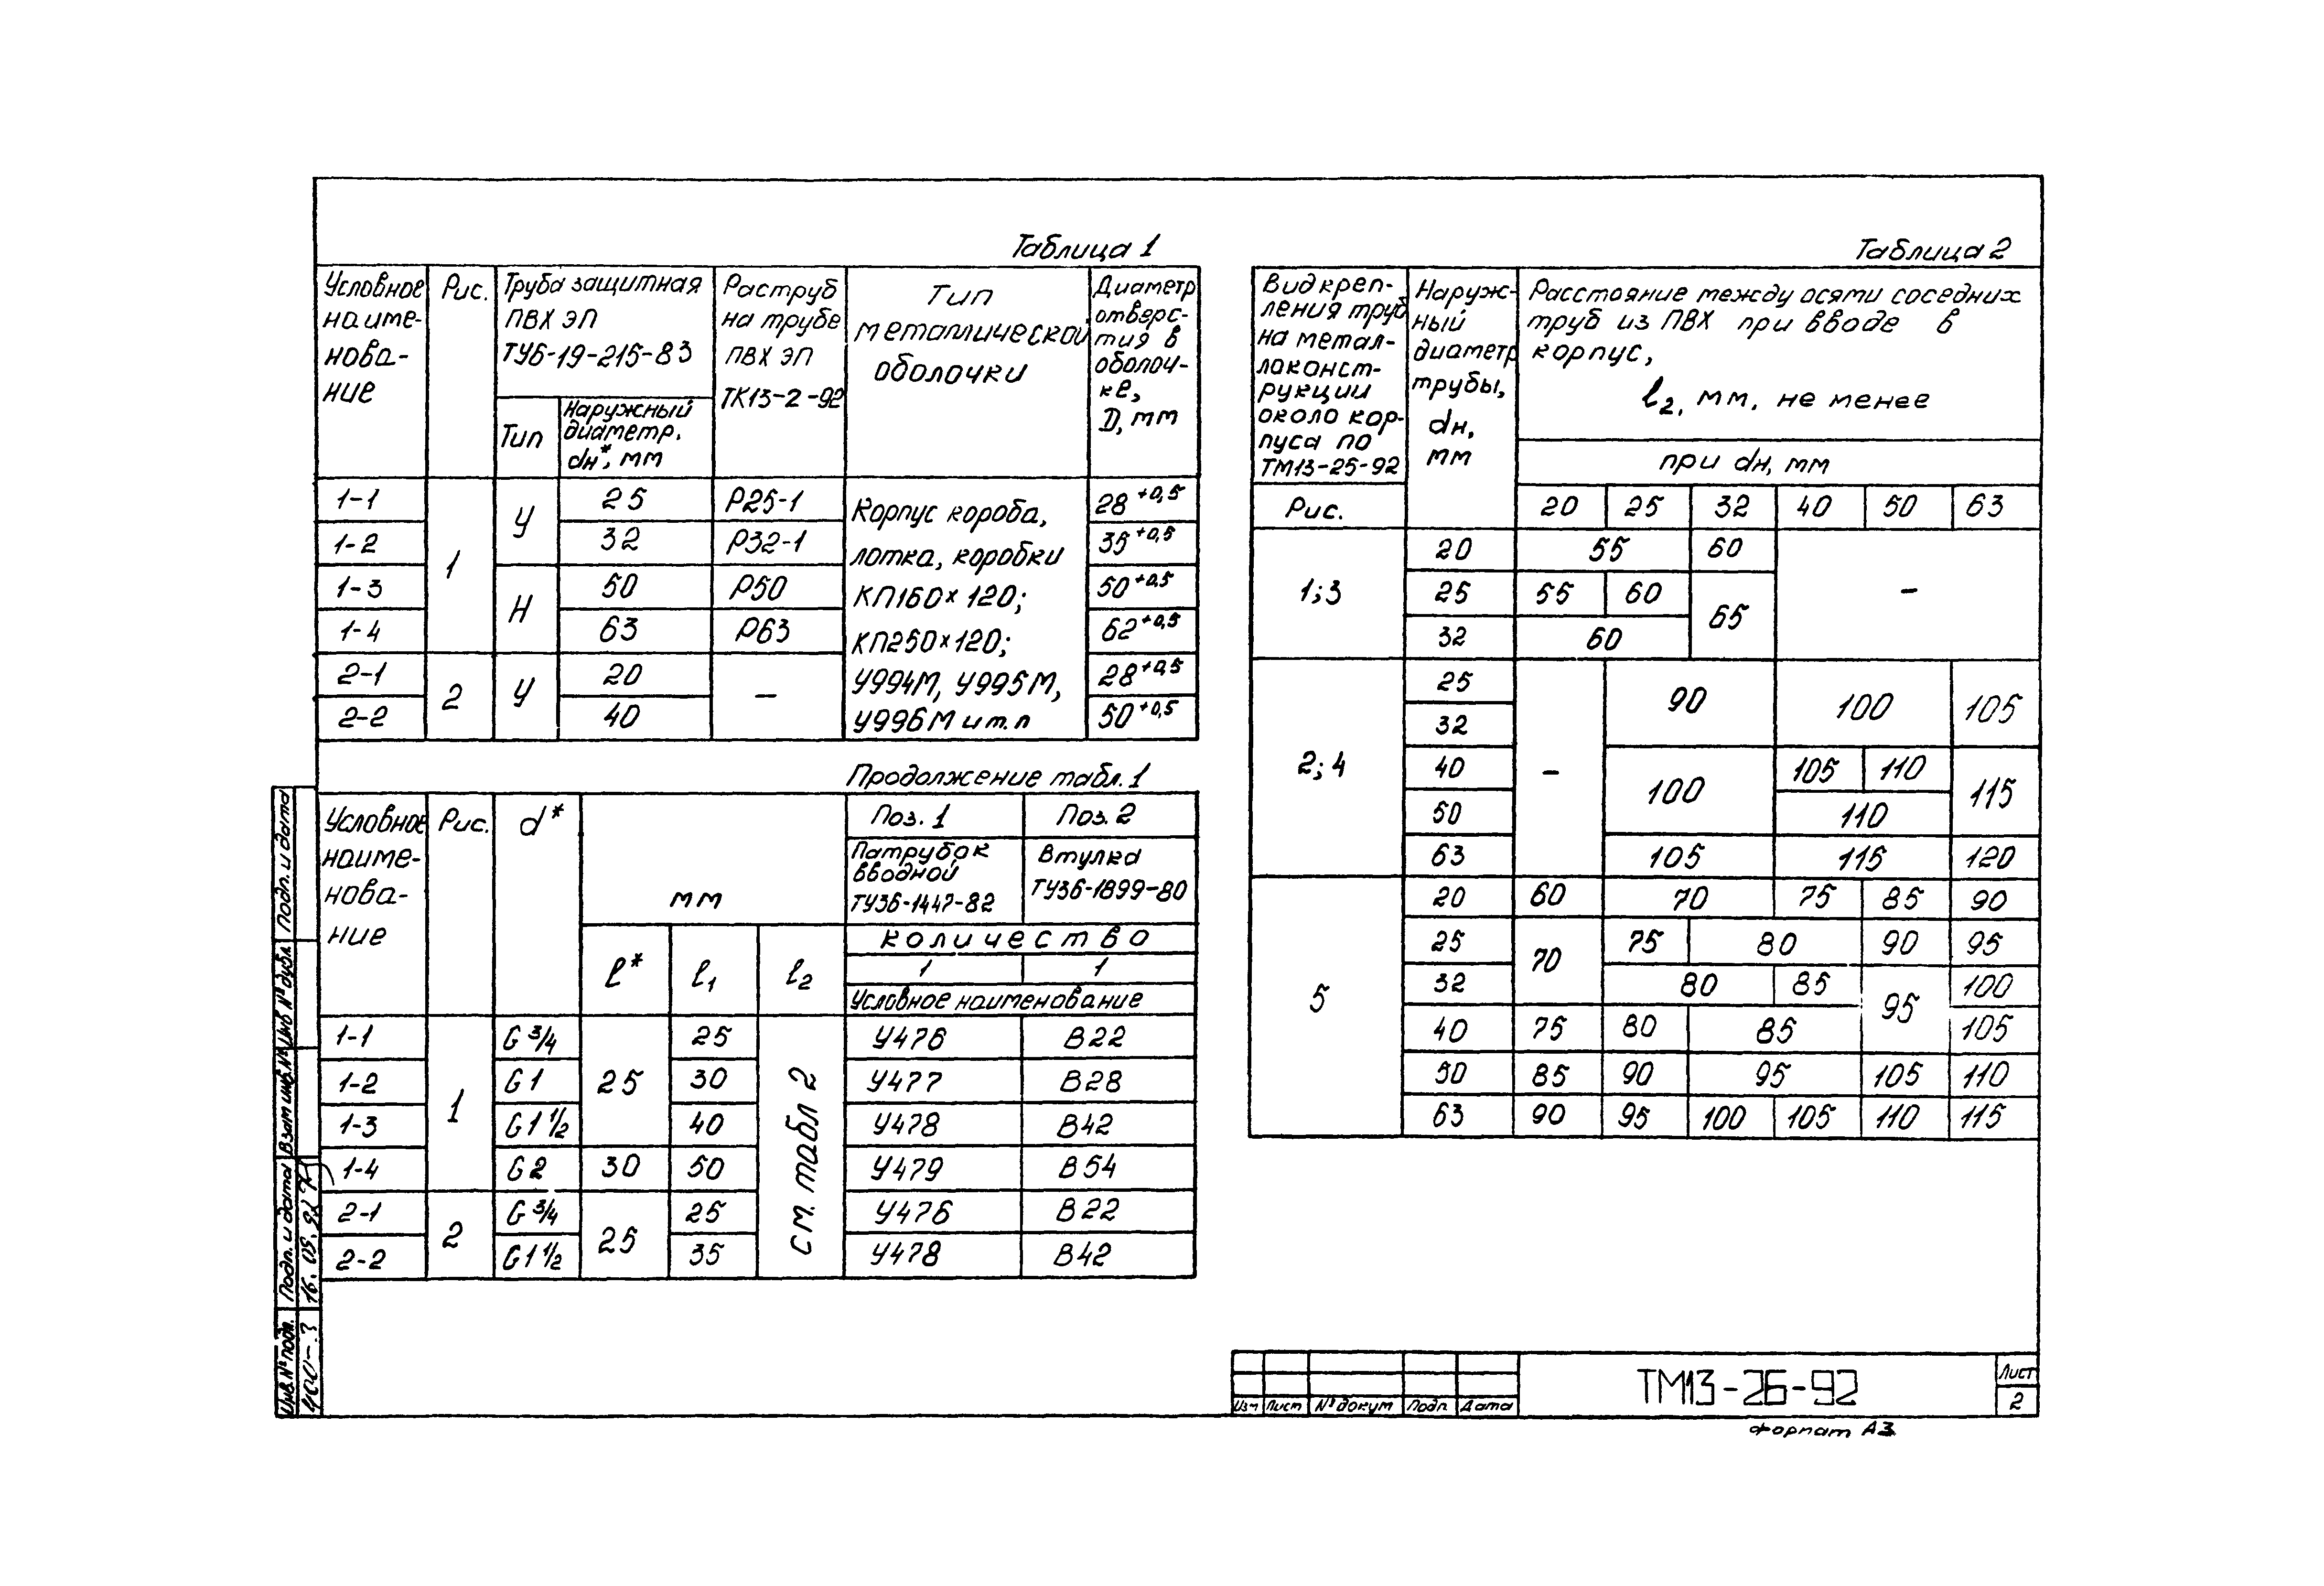 Таблица 1
Условное наиме-нова-ние
Рис.
Труба защитная
ПВХ ЭП
ТУ6-19-215-83
Тип
Наружный диаметр, dн*, мм
Раструб на трубе ПВХ ЭП ТК13-2-92
Тип металлической оболочки
Диаметр отверс-тия в оболоч-ке, D, мм
1-1 1 У 25 Р25-1 28+0,5
1-2 32 Р32-1 35+0,5
1-3 Н 50 Р50 50+0,5
1-4 63 Р63 62+0,5
2-1 2 У 20 – 28+0,5
2-2 40 50+0,5
Корпус короба,
лотка, коробки
КП160×120;
КП250×120;
У994М, У995М,
У996М и т.п
Продолжение табл. 1
Условное наиме-нова-ние
Рис.
d*
мм
l* l1 l2
Поз. 1 Поз. 2
Патрубок вводной ТУ36-1447-82
Втулка ТУ36-1899-80
Количество
1 1
Условное наименование
1-1 1 G 3/4 25 25 см. табл 2 У476 В22
1-2 G1 30 У477 В28
1-3 G1 1/2 40 У478 В42
1-4 G2 30 50 У479 В54
2-1 2 G 3/4 25 25 У476 В22
2-2 G1 1/2 35 У478 В42
Таблица 2
Вид креп-
ления труб
на метал-
локонст-
рукции
около кор-
пуса по
ТМ13-25-92
Рис.
Наруж-
ный
диаметр
трубы,
dн,
мм
Расстояние между осями соседних
труб из ПВХ при вводе в
корпус,
l2, мм, не менее
при dн, мм
20 25 32 40 50 63
1;3 20 55 60 –
25 55 60 65
32 60
2;4 25 – 90 100 105
32
40 100 105 110 115
50 110
63 105 115 120
5 20 60 70 75 85 90
25 70 75 80 90 95
32 80 85 95 100
40 75 80 85 105
50 85 90 95 105 110
63 90 95 100 105 110 115
Подп. и дата
Инв № дубл.
Взам инв. №
Подп. и дата
Инв. № подл.
Изм Лист № докум Подп Дата
ТМ13-26-92
Лист
2
Формат А3